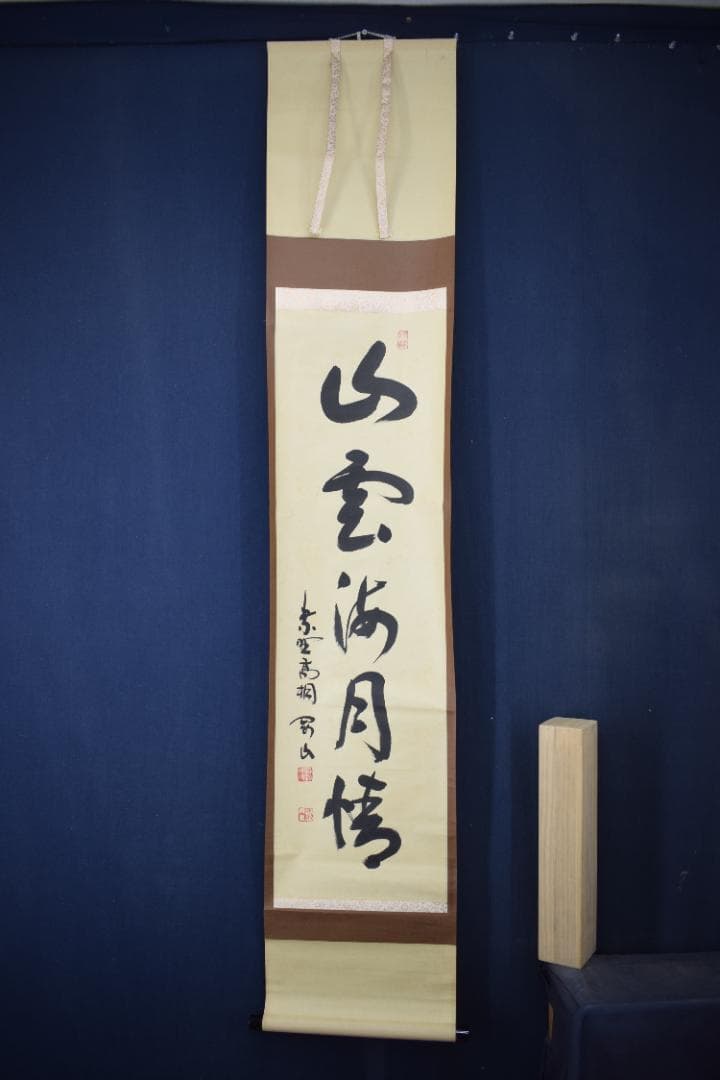 山雲海月情
紫野高桐剛山